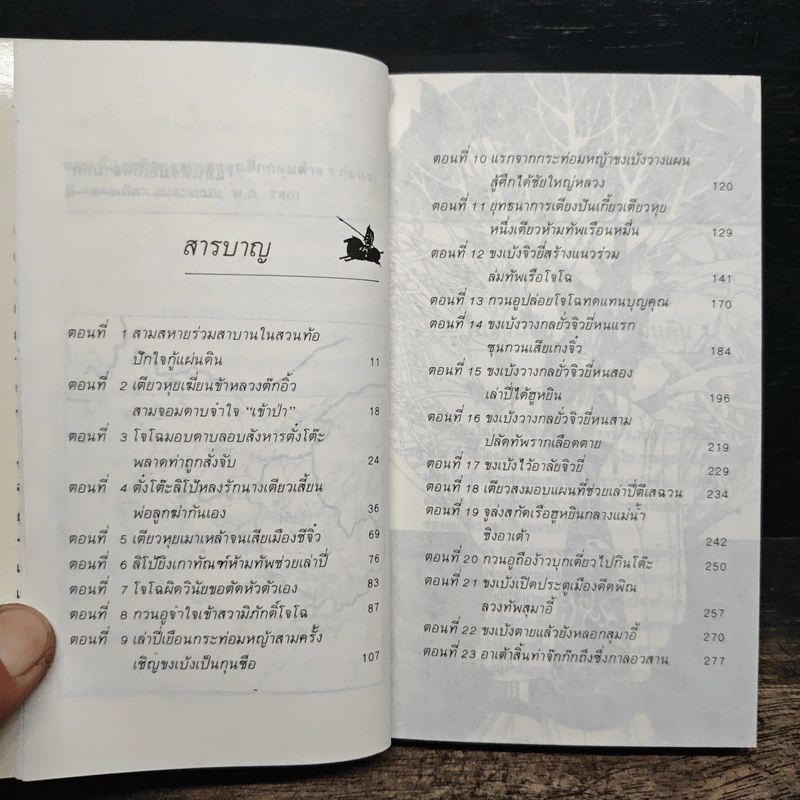 สารบาญ
ตอนที่ 1 สามสหายร่วมสาบานในสวนท้อ
ปักใจกู้แผ่นดิน 11
ตอนที่ 2 เตียวหุยเฆี่ยนข้าหลวงต๊กอิ้ว
สามจอมดาบจำใจ “เข้าป่า” 18
ตอนที่ 3 โจโฉมอบดาบลอบสังหารตั๋งโต๊ะ
พลาดท่าถูกสั่งจับ 24
ตอนที่ 4 ตั๋งโต๊ะลิโป้หลงรักนางเตียวเสี้ยน
พ่อลูกฆ่ากันเอง 36
ตอนที่ 5 เตียวหุยเมาเหล้าจนเสียเมืองชีจิ๋ว 69
ตอนที่ 6 ลิโป้ยิงเกาทัณฑ์ห้ามทัพช่วยเล่าปี่ 76
ตอนที่ 7 โจโฉผิดวินัยขอตัดหัวตัวเอง 83
ตอนที่ 8 กวนอูจำใจเข้าสวามิภักดิ์โจโฉ 87
ตอนที่ 9 เล่าปี่เยือนกระท่อมหญ้าสามครั้ง
เชิญขงเบ้งเป็นกุนซือ 107
ตอนที่ 10 แรกจากกระท่อมหญ้าขงเบ้งวางแผน
สู้ศึกได้ชัยใหญ่หลวง 120
ตอนที่ 11 ยุทธนาการเตียงปันเกี้ยวเตียวหุย
หนึ่งเดียวห้ามทัพเรือนหมื่น 129
ตอนที่ 12 ขงเบ้งจิวยี่สร้างแนวร่วม
ล่มทัพเรือโจโฉ 141
ตอนที่ 13 กวนอูปล่อยโจโฉทดแทนบุญคุณ 170
ตอนที่ 14 ขงเบ้งวางกลยั่วจิวยี่หนแรก
ซุนกวนเสียเกงจิ๋ว 184
ตอนที่ 15 ขงเบ้งวางกลยั่วจิวยี่หนสอง
เล่าปี่ได้ฮูหยิน 196
ตอนที่ 16 ขงเบ้งวางกลยั่วจิวยี่หนสาม
ปลัดทัพรากเลือดตาย 219
ตอนที่ 17 ขงเบ้งไว้อาลัยจิวยี่ 229
ตอนที่ 18 เตียวสงมอบแผนที่ช่วยเล่าปี่ตีเสฉวน 234
ตอนที่ 19 จูล่งสกัดเรือฮูหยินกลางแม่น้ำ
ชิงอาเต้า 242
ตอนที่ 20 กวนอูถือง้าวบุกเดี่ยวไปกินโต๊ะ 250
ตอนที่ 21 ขงเบ้งเปิดประตูเมืองดีดพิณ
ลวงทัพสุมาอี้ 257
ตอนที่ 22 ขงเบ้งตายแล้วยังหลอกสุมาอี้ 270
ตอนที่ 23 อาเต้าสิ้นท่าจ๊กก๊กถึงซึ่งกาลอวสาน 277